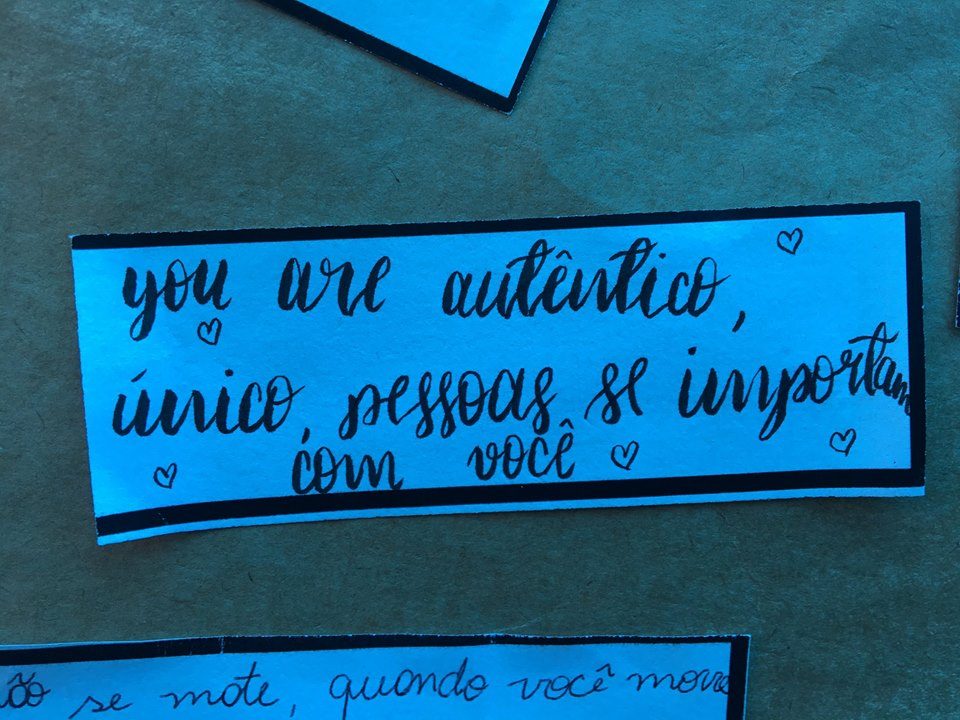 you are autêntico,
único, pessoas se importam
com você
ão se mate, quando você morre